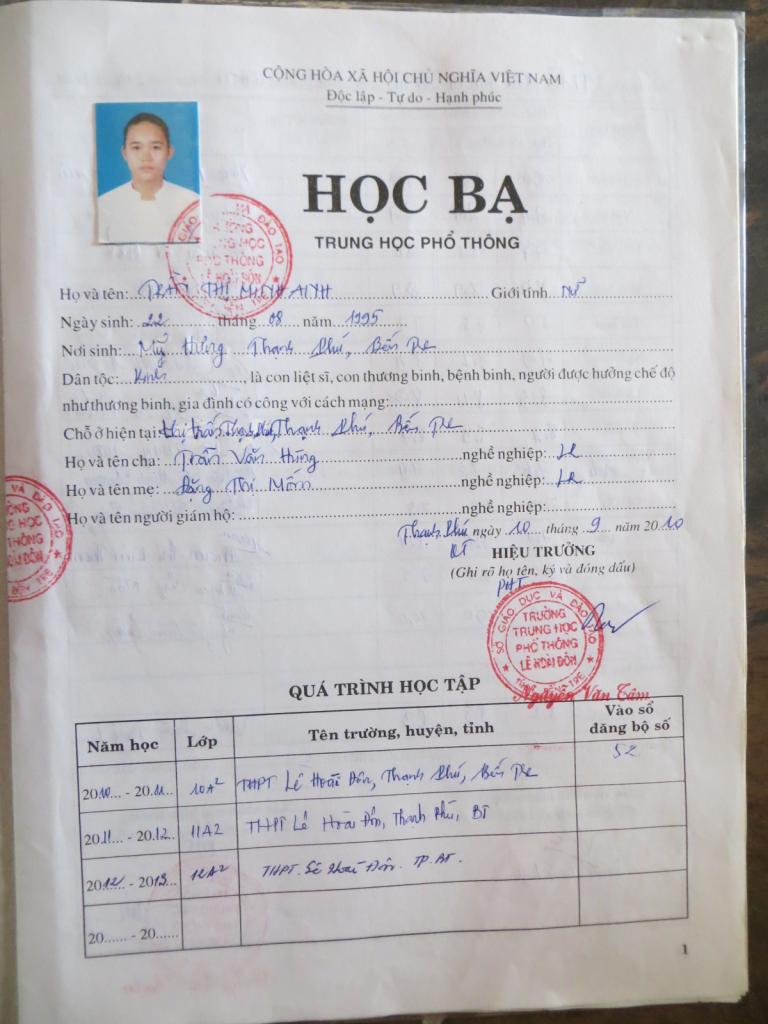 CỘNG HÒA XÃ HỘI CHỦ NGHĨA VIỆT NAM
Độc lập - Tự do - Hạnh phúc
HỌC BẠ
TRUNG HỌC PHỔ THÔNG
Họ và tên: TRẦN THỊ MINH ANH Giới tính Nữ
Ngày sinh: 22 tháng 08 năm 1995
Nơi sinh: Mỹ Hưng Thạnh Phú, Bến Tre
Dân tộc: Kinh, là con liệt sĩ, con thương binh, bệnh binh, người được hưởng chế độ
như thương binh, gia đình có công với cách mạng:
Chỗ ở hiện tại: Thị trấn Thạnh Phú, Thạnh Phú, Bến Tre
Họ và tên cha: Trần Văn Hùng nghề nghiệp: LR
Họ và tên mẹ: Đặng Thị Mến nghề nghiệp: LR
Họ và tên người giám hộ: nghề nghiệp:
Thạnh Phú ngày 10 tháng 9 năm 2010
KT HIỆU TRƯỞNG
(Ghi rõ họ tên, ký và đóng dấu)
PHT
SỞ GIÁO DỤC VÀ ĐÀO TẠO
TRƯỜNG
TRUNG HỌC
PHỔ THÔNG
LÊ HOÀI ĐÔN
TỈNH BẾN TRE
Nguyễn Văn Tâm
QUÁ TRÌNH HỌC TẬP
Năm học Lớp Tên trường, huyện, tỉnh Vào sổ đăng bộ số
2010 - 2011 10A2 THPT Lê Hoài Đôn, Thạnh Phú, Bến Tre 52
2011 - 2012 11A2 THPT Lê Hoài Đôn, Thạnh Phú, BT
2012 - 2013 12A2 THPT. Lê Hoài Đôn. TP. BT.
20...... - 20......
1